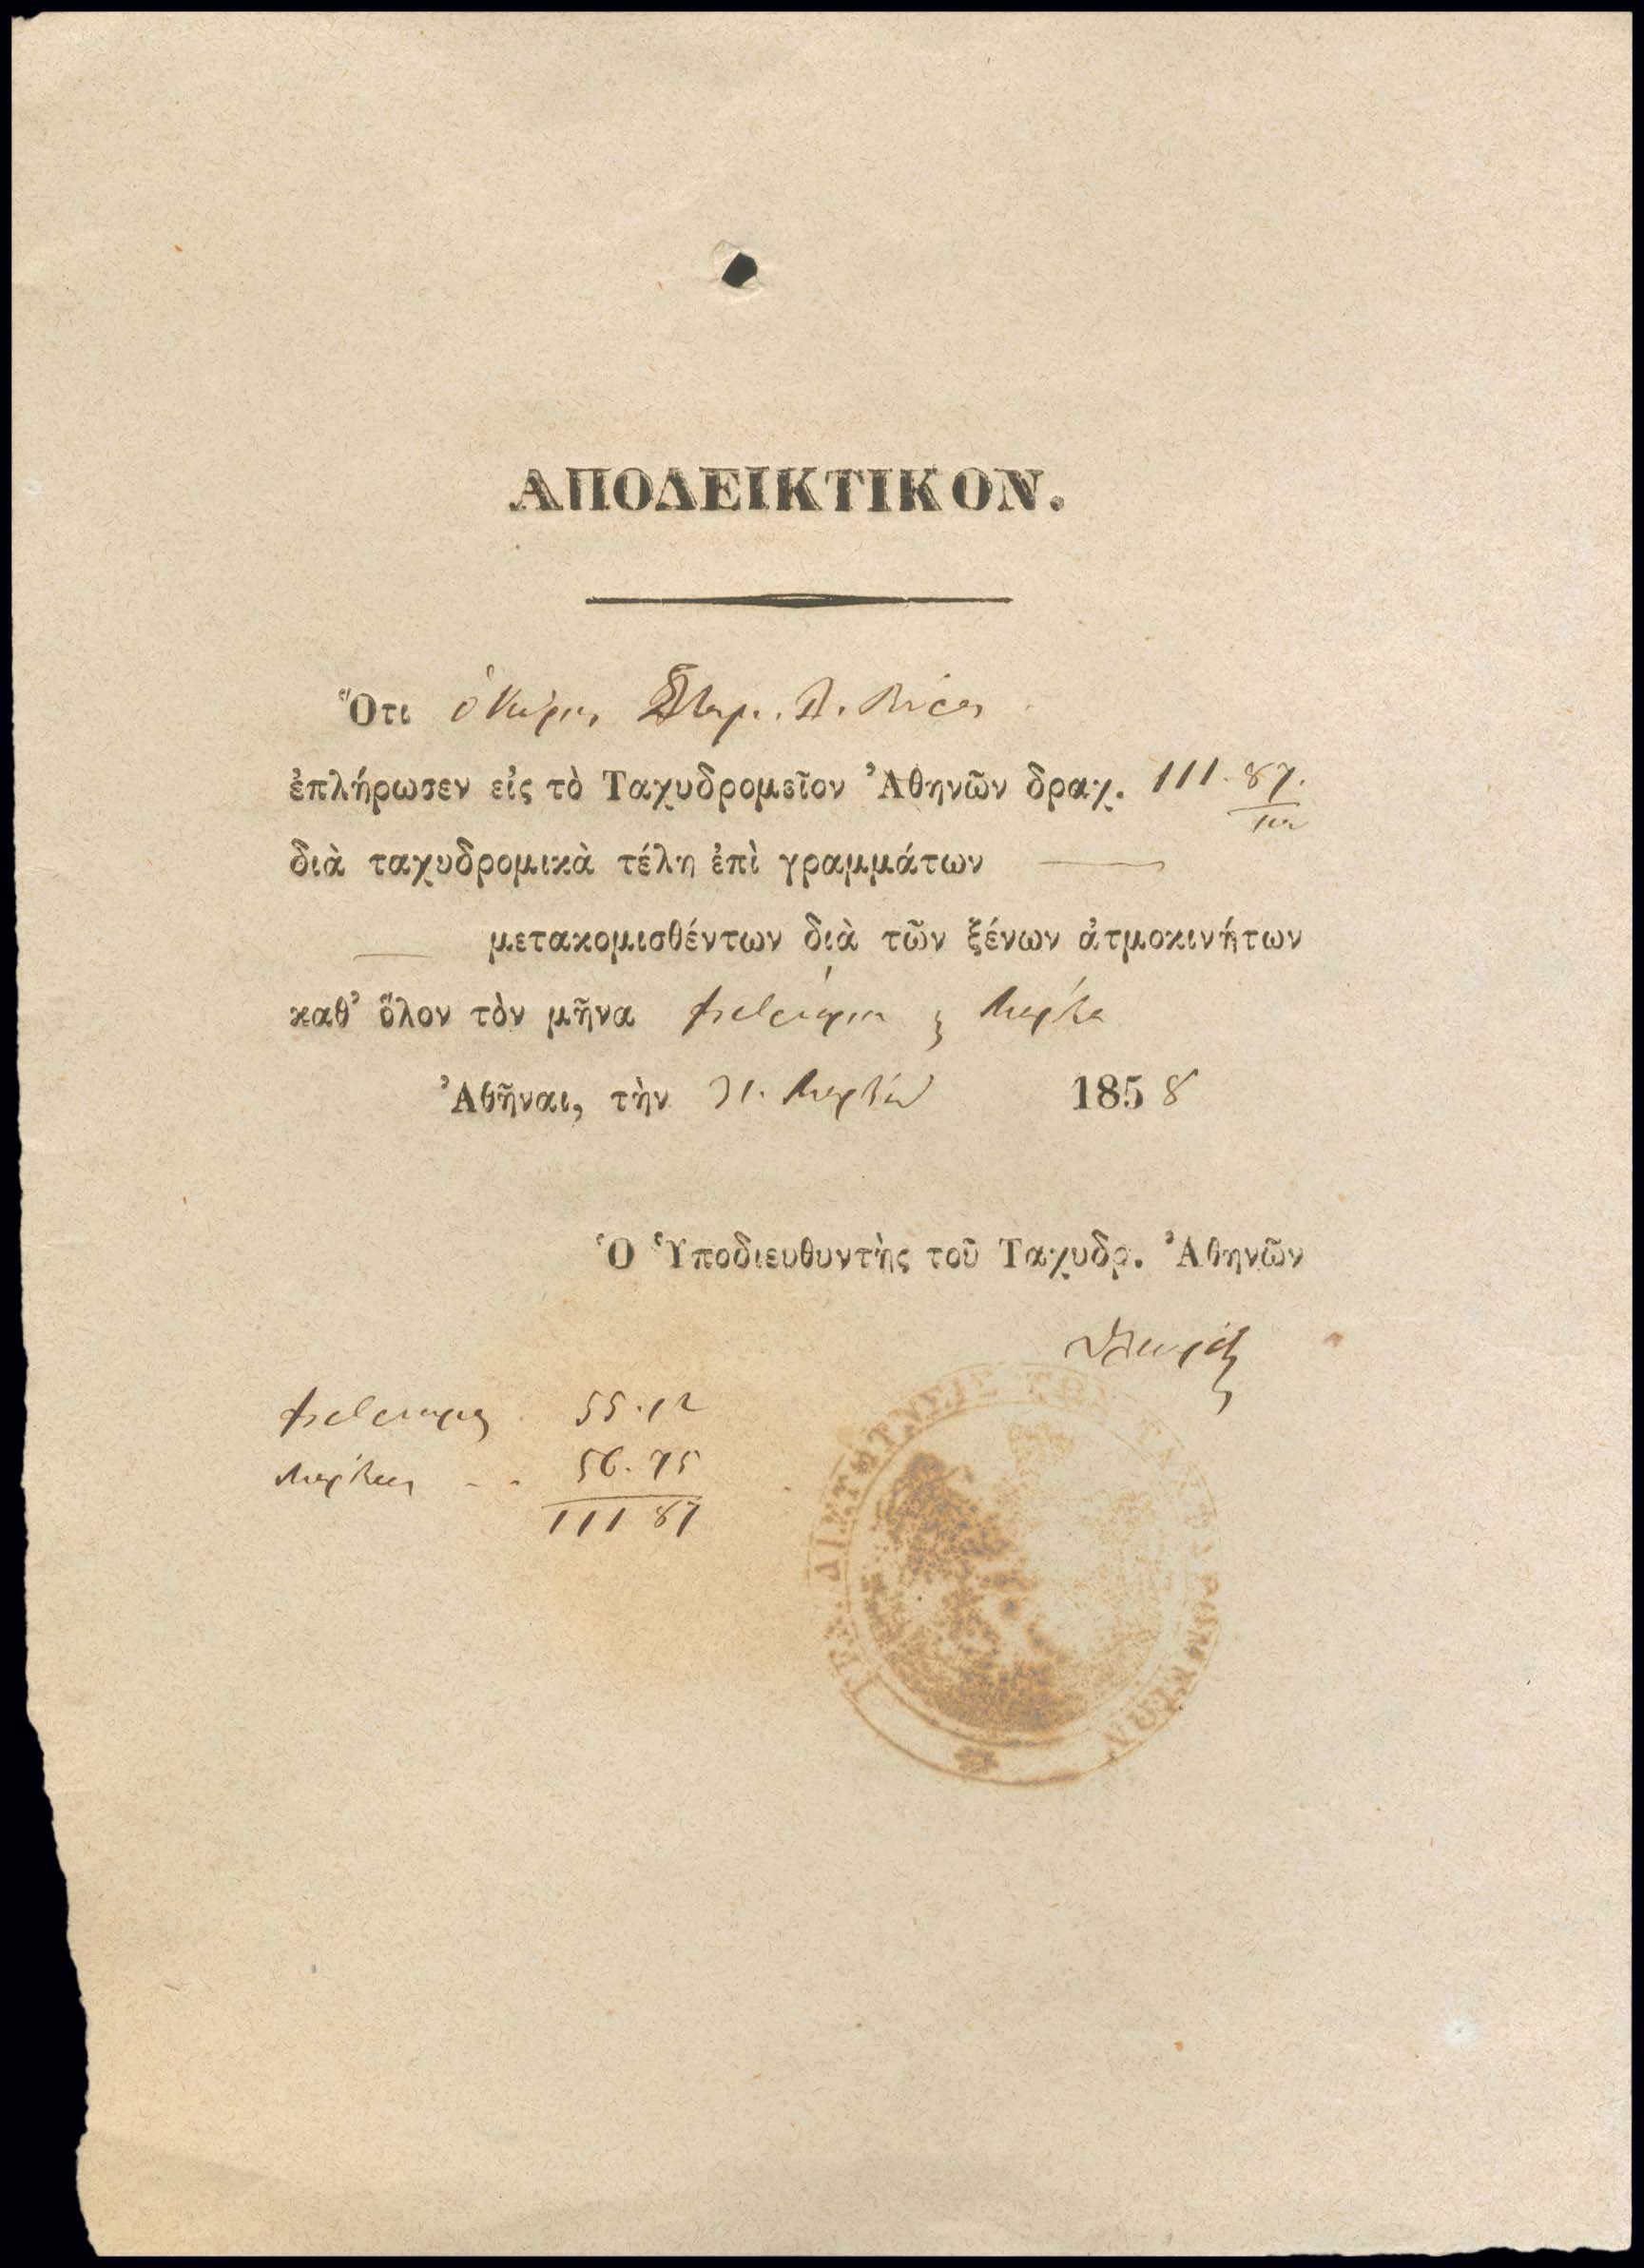 ΑΠΟΔΕΙΚΤΙΚΟΝ.
Ὅτι ὁ Κύριος
ἐπλήρωσεν εἰς τὸ Ταχυδρομεῖον Ἀθηνῶν δραχ. 111. 87.
100
διὰ ταχυδρομικὰ τέλη ἐπὶ γραμμάτων
μετακομισθέντων διὰ τῶν ξένων ἀτμοκινήτων
καθ' ὅλον τὸν μῆνα Φεβρουάριον Μάρτιον
Ἀθῆναι, τὴν 31. Μαρτίου 1858
Ὁ Ὑποδιευθυντὴς τοῦ Ταχυδρ. Ἀθηνῶν
Φεβρουάριος 55.12
Μάρτιος - - 56.75
111 87